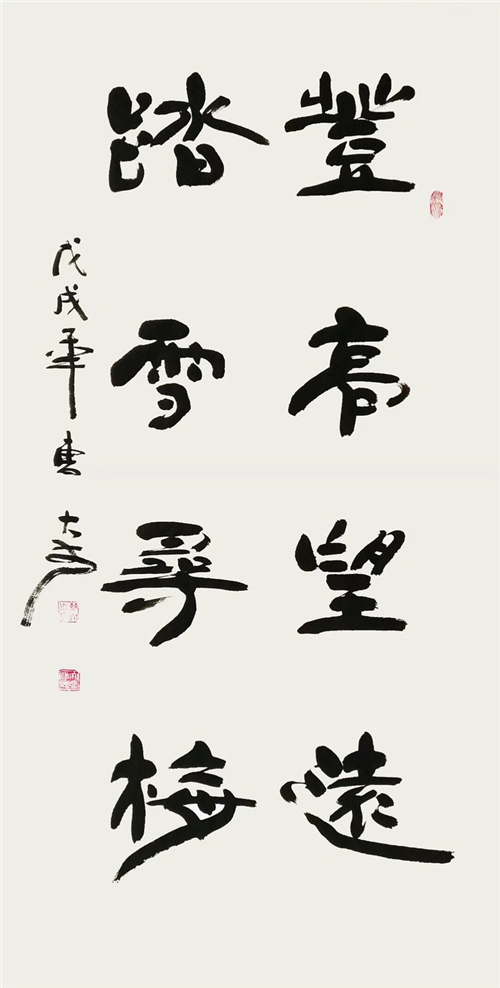 登高望遠
踏雪尋梅
戊戌年曹大